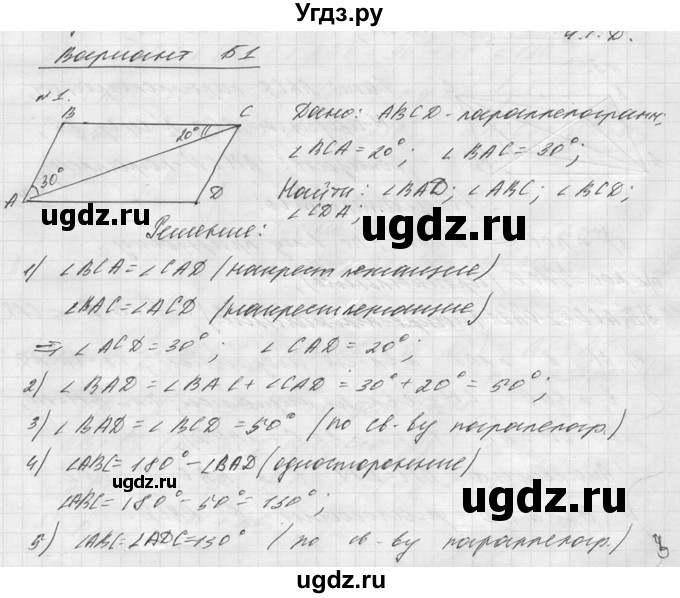 Угдз.ру
ч.т.д.
Вариант Б1
№1.
B C
20°
30°
A D
Дано: ABCD - параллелограмм;
∠BCA = 20°; ∠BAC = 30°;
Найти: ∠BAD; ∠ABC; ∠BCD;
∠CDA;
ugdz.ru ugdz.ru
Решение:
1) ∠BCA = ∠CAD (накрест лежащие)
∠BAC = ∠ACD (накрест лежащие)
⇒ ∠ACD = 30°; ∠CAD = 20°;
ugdz.ru
2) ∠BAD = ∠BAC + ∠CAD = 30° + 20° = 50°;
3) ∠BAD = ∠BCD = 50° (по св-ву параллелогр.)
4) ∠ABC = 180° - ∠BAD (односторонние)
∠ABC = 180° - 50° = 130°;
ugdz.ru ugdz.ru
5) ∠ABC = ∠ADC = 130° (по св-ву параллелогр.)
ugdz.ru